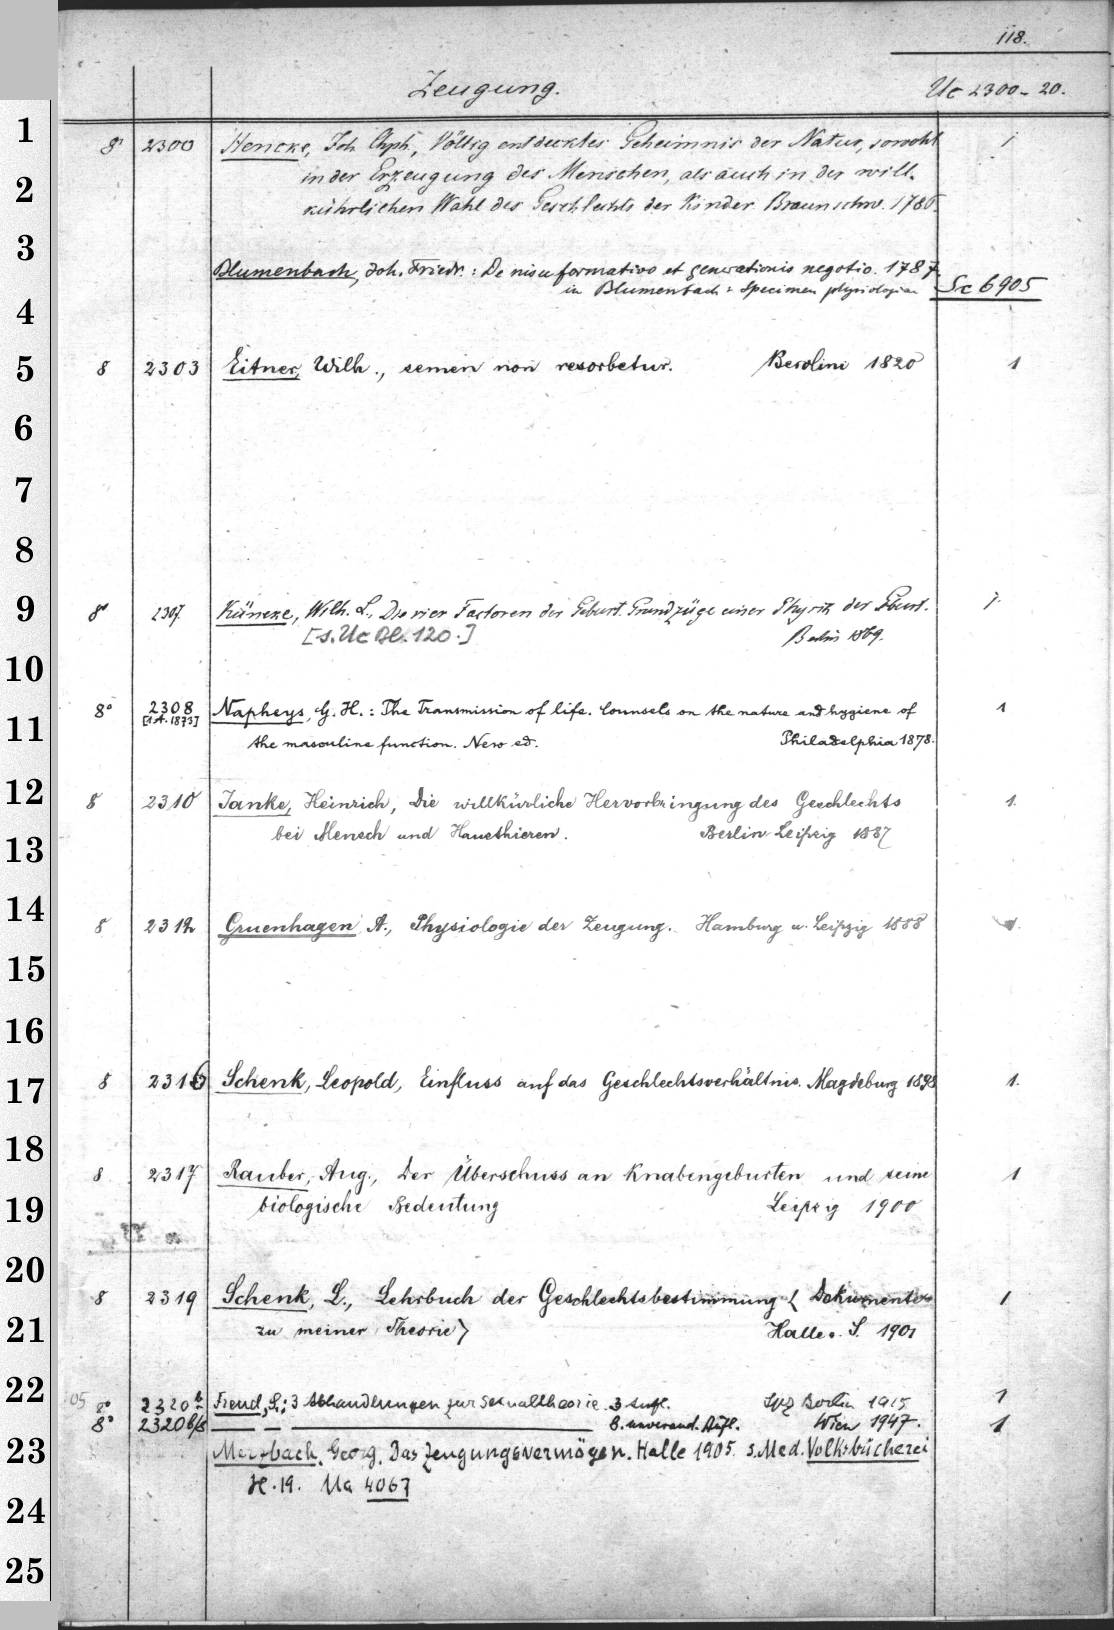 118.
Zeugung. Uc 2300-20.
1
8° 2300 Hencke, Joh. Chph., Völlig entdecktes Geheimnis der Natur, sowohl 1
2
in der Erzeugung des Menschen, als auch in der will-
kührlichen Wahl des Geschlechts der Kinder Braunschw. 1786.
3
Blumenbach, Joh. Friedr.: De nisu formativo et generationis negotio. 1787.
in Blumenbach: Specimen physiologiae Sc 6905
4
5
8 2303 Eitner, Wilh., semen non resorbetur. Berolini 1820 1
6
7
8
9
8° 2307. Küneke, Wilh. L., Die vier Factoren der Geburt. Grundzüge einer Physik der Geburt. 1.
[s. Uc Bl. 120.] Berlin 1869.
10
8° 2308 Napheys, G. H.: The Transmission of life. Counsels on the nature and hygiene of 1
[1.A. 1873]
11
the masculine function. New ed. Philadelphia 1878.
12
8 2310 Janke, Heinrich, Die willkürliche Hervorbringung des Geschlechts 1.
bei Mensch und Hausthieren. Berlin Leipzig 1887
13
14
8 2312 Gruenhagen A., Physiologie der Zeugung. Hamburg u. Leipzig 1888 1.
15
16
17
8 2316 Schenk, Leopold, Einfluss auf das Geschlechtsverhältnis. Magdeburg 1898 1.
18
8 2317 Rauber, Aug., Der Überschuss an Knabengeburten und seine 1
19
biologische Bedeutung Leipzig 1900
20
8 2319 Schenk, L., Lehrbuch der Geschlechtsbestimmung < Dokumente 1
21
zu meiner Theorie> Halle a. S. 1901
22
05 8° 2320 b Freud, S.: 3 Abhandlungen zur Sexualtheorie. 3 Aufl. Lpz Berlin 1915 1
8° 2320 b/8 — — — 8. unveränd. Aufl. Wien 1947. 1
23
Merzbach, Georg. Das Zeugungsvermögen. Halle 1905. s. Med. Volksbücherei
H. 19. Ua 4067
24
25